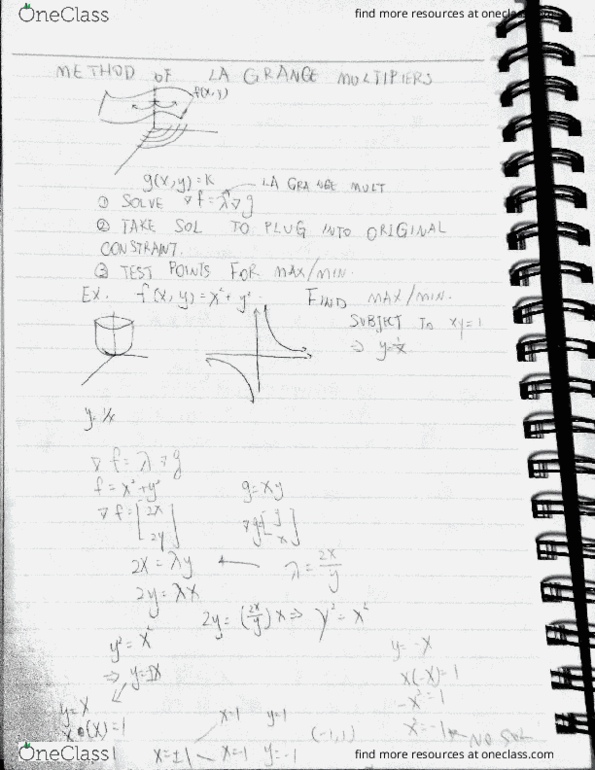 OneClass
find more resources at oneclass.com
METHOD OF LA GRANGE MULTIPIERS
f(x,y)
g(x,y)=K
LA GRANGE MULT
① SOLVE ∇f=λ∇g
② TAKE SOL TO PLUG INTO ORIGINAL
CONSTRAINT.
③ TEST POINTS FOR MAX/MIN.
EX. f(x,y)=x²+y². FIND MAX/MIN.
SUBJECT TO xy=1
⇒ y=1/x
y=1/x
∇f=λ∇g
f=x²+y² g=xy
∇f=[2x 2y] ∇g=[y x]
2x=λy ← λ=2x/y
2y=λx
2y=(2x/y)x ⇒ y²=x²
y²=x²
⇒ y=±x
y=-x
x(-x)=1
-x²=1
x²=-1 ← NO SOL
y=x
x•(x)=1
x=1 y=1
x=±1 x=-1 y=-1
(-1,1)
OneClass
find more resources at oneclass.com